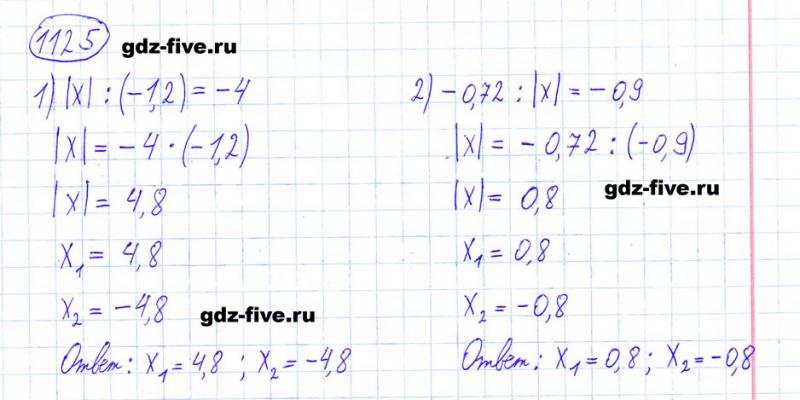 1125 gdz-five.ru
1) |x| : (-1,2) = -4
|x| = -4 · (-1,2)
|x| = 4,8
x₁ = 4,8
x₂ = -4,8
gdz-five.ru
Ответ: x₁ = 4,8 ; x₂ = -4,8
2) -0,72 : |x| = -0,9
|x| = -0,72 : (-0,9)
|x| = 0,8
gdz-five.ru
x₁ = 0,8
x₂ = -0,8
Ответ: x₁ = 0,8 ; x₂ = -0,8